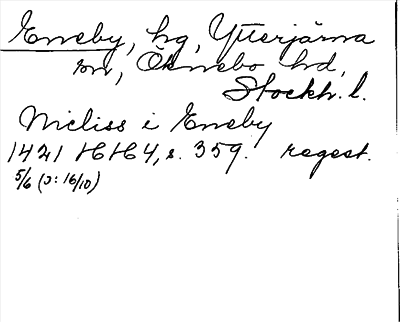 Eneby, hg, Ytterjärna
sn, Öknebo hd,
Stockh. l.
Nicliss i Eneby
1421 HH 4, s. 359. regest.
5/6 (J: 16/10)